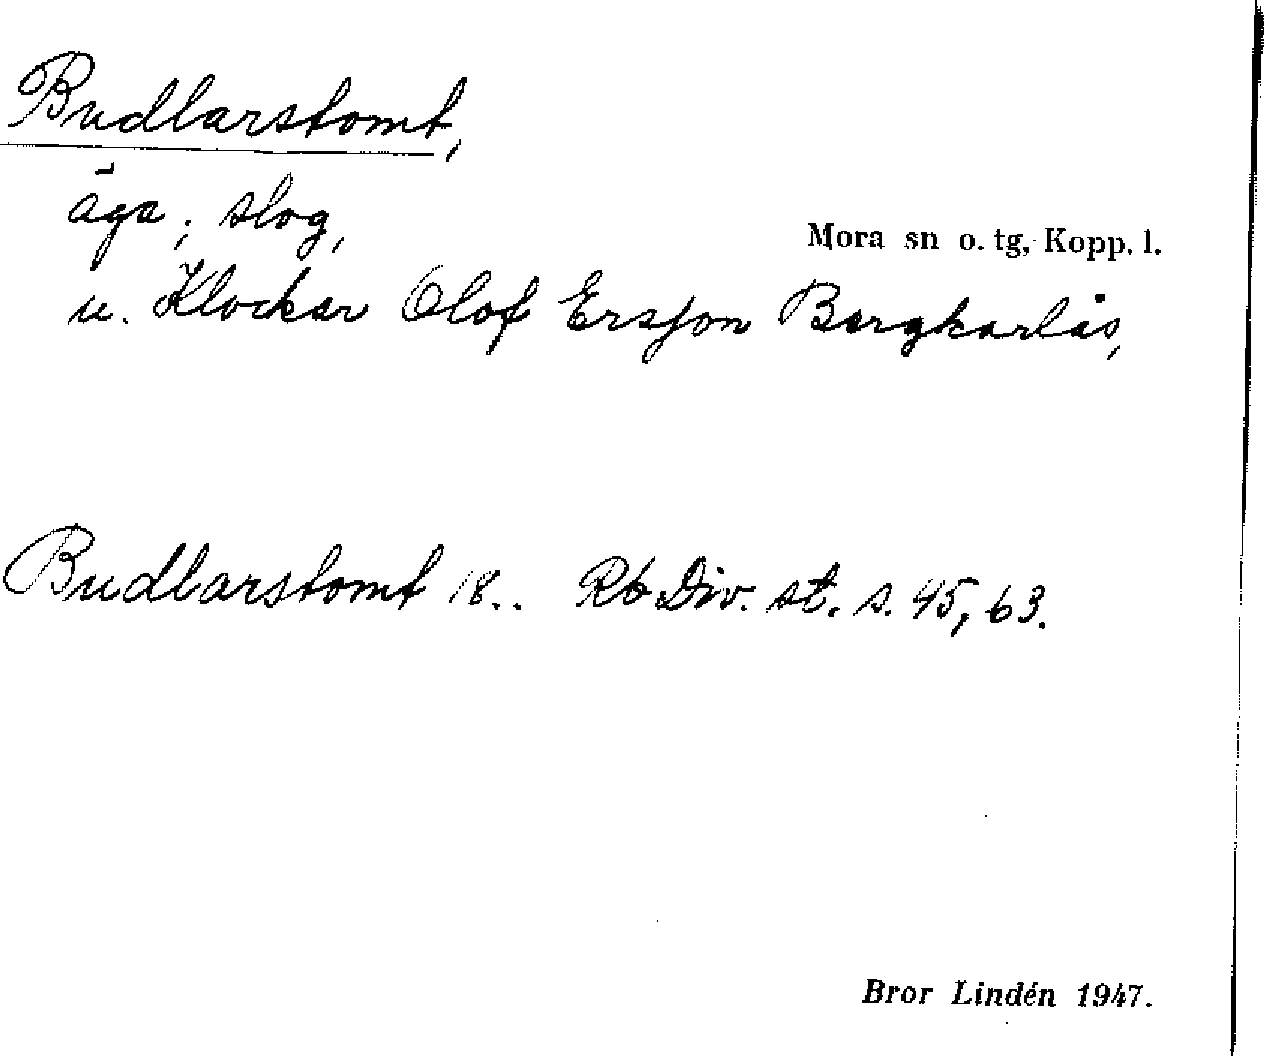 Budlarstomt,
äga; slog,
Mora sn o. tg, Kopp. l.
u. Klockar Olof Ersson Bergkarlås,
Budlarstomt 18.. Rb Div. st. s. 45, 63.
Bror Lindén 1947.